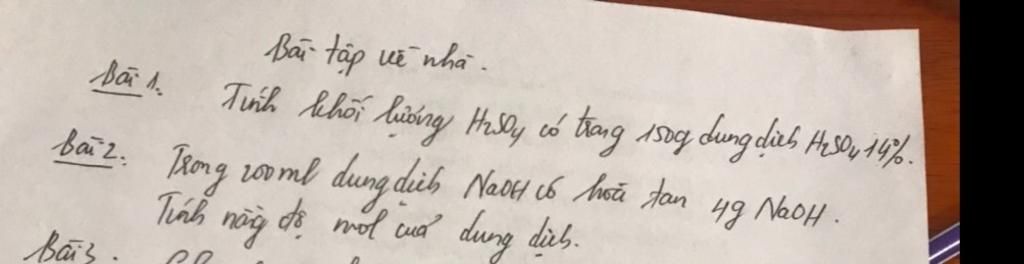 Bài tập về nhà.
Bài 1. Tính khối lượng H₂SO₄ có trong 150g dung dịch H₂SO₄ 14%.
Bài 2. Trong 200ml dung dịch NaOH có hoà tan 4g NaOH.
Tính nồng độ mol của dung dịch.
Bài 3.